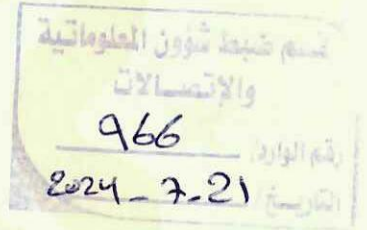 قسم ضبط شؤون المعلوماتية
والإتصالات
رقم الوارد/ 966
التاريخ/ 2024-7-21